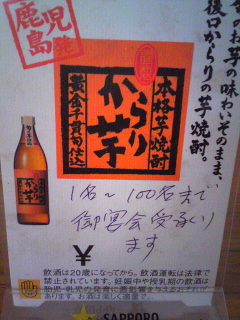 鹿児島発
のお芋の味わいそのまま、
後口からりの芋焼酎。
本格芋焼酎
からり芋
黄金千貫旬仕込
からり芋
1名～100名まで
御宴会受承り
ます
¥
飲酒は20歳になってから。飲酒運転は法律で
禁止されています。妊娠中や授乳期の飲酒は
胎児・乳児の発育に悪影響を与えるおそれが
あります。お酒は楽しく適量で
SAPPORO